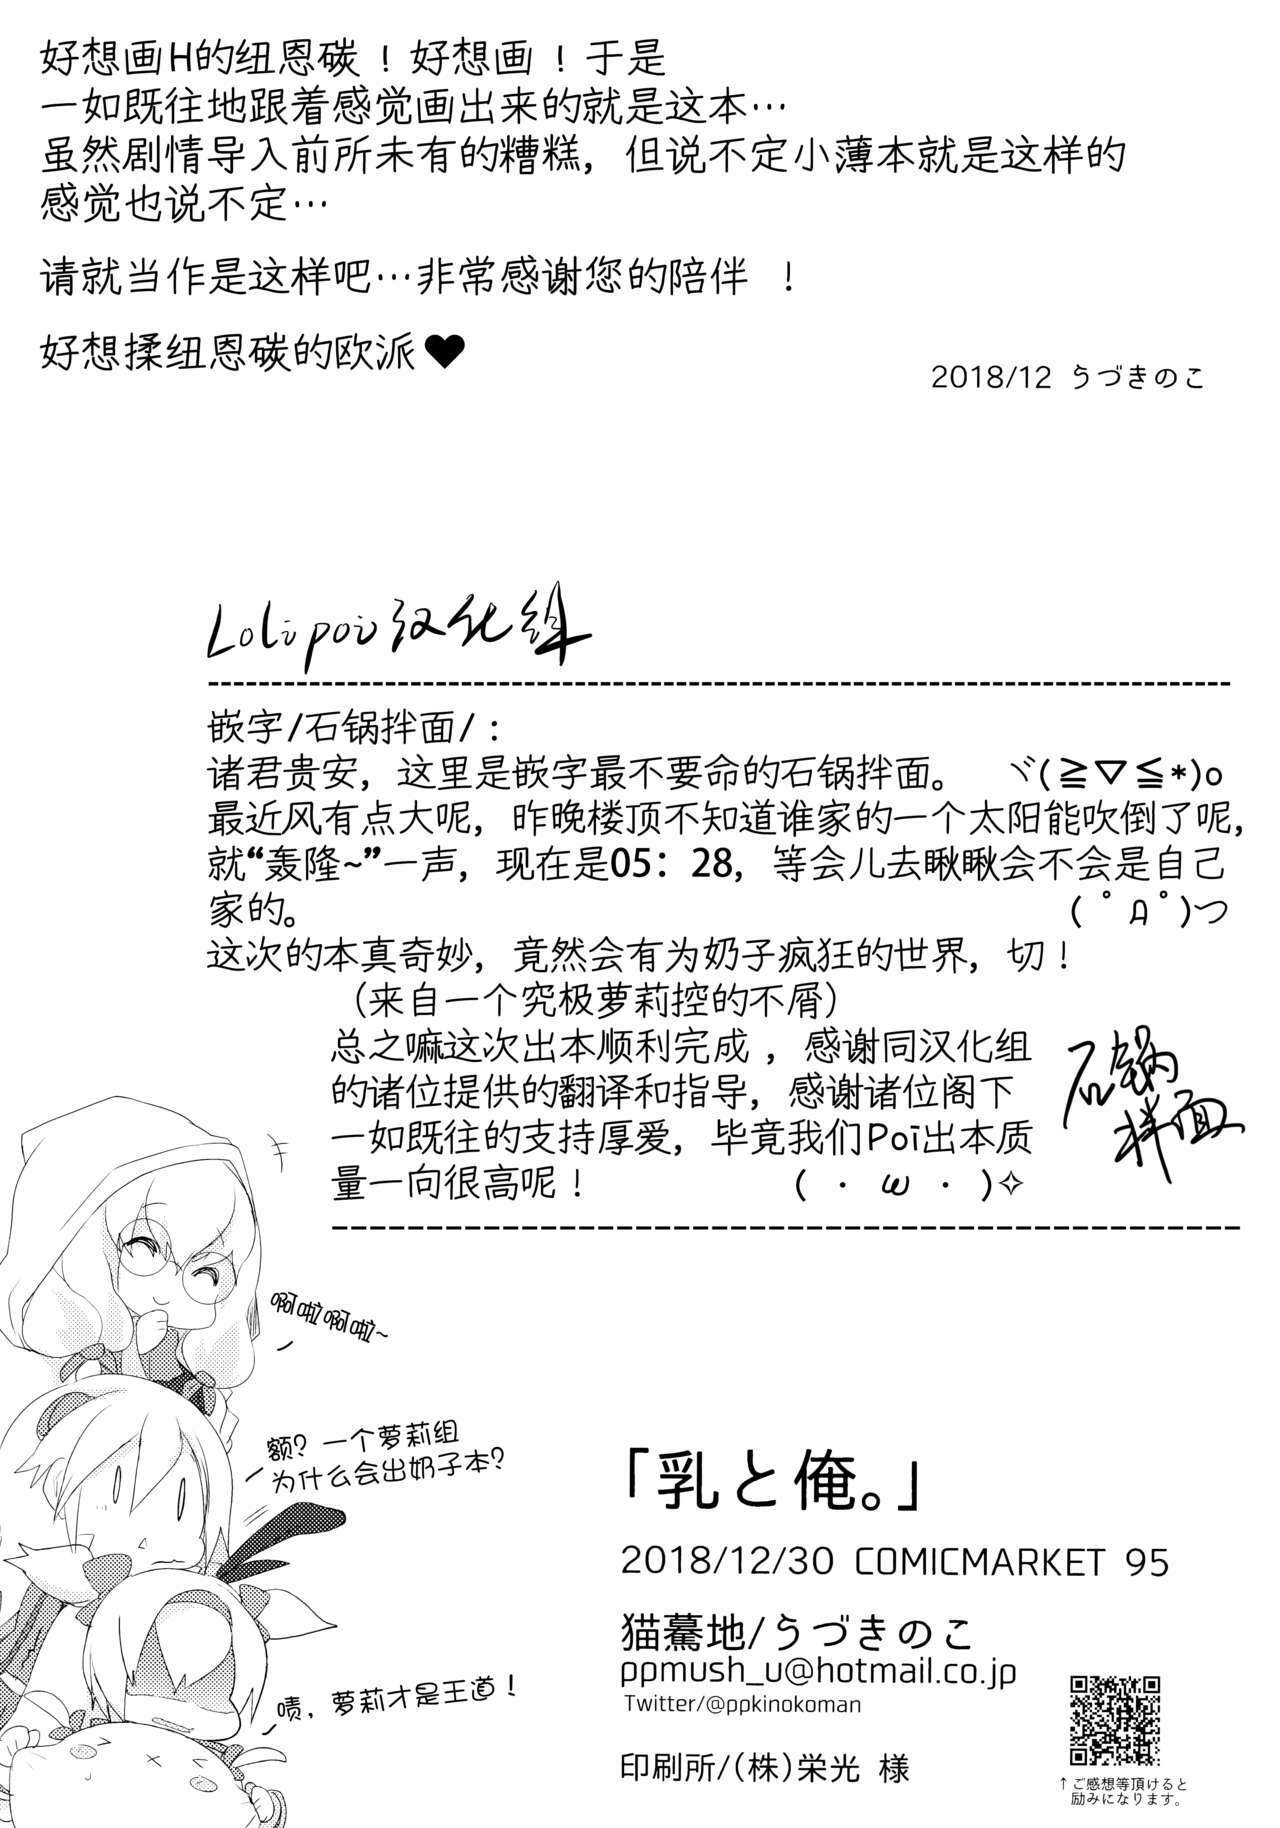 好想画H的纽恩碳！好想画！于是
一如既往地跟着感觉画出来的就是这本…
虽然剧情导入前所未有的糟糕，但说不定小薄本就是这样的
感觉也说不定…
请就当作是这样吧…非常感谢您的陪伴 ！
好想揉纽恩碳的欧派♥
2018/12 うづきのこ
Lolipoi汉化组
嵌字/石锅拌面/：
诸君贵安，这里是嵌字最不要命的石锅拌面。 ヾ(≧▽≦*)o
最近风有点大呢，昨晚楼顶不知道谁家的一个太阳能吹倒了呢，
就“轰隆~”一声，现在是05：28，等会儿去瞅瞅会不会是自己
家的。 ( ﾟДﾟ)つ
这次的本真奇妙，竟然会有为奶子疯狂的世界，切！
（来自一个究极萝莉控的不屑）
总之嘛这次出本顺利完成 ，感谢同汉化组
的诸位提供的翻译和指导，感谢诸位阁下
一如既往的支持厚爱，毕竟我们Poi出本质
量一向很高呢！ ( ・ ω ・ )✧
石锅
拌面
啊啦啊啦~
额？一个萝莉组
为什么会出奶子本？
啧，萝莉才是王道！
「乳と俺。」
2018/12/30 COMICMARKET 95
猫驀地/うづきのこ
ppmush_u@hotmail.co.jp
Twitter/@ppkinokoman
印刷所/(株)栄光 様
↑ご感想等頂けると
励みになります。